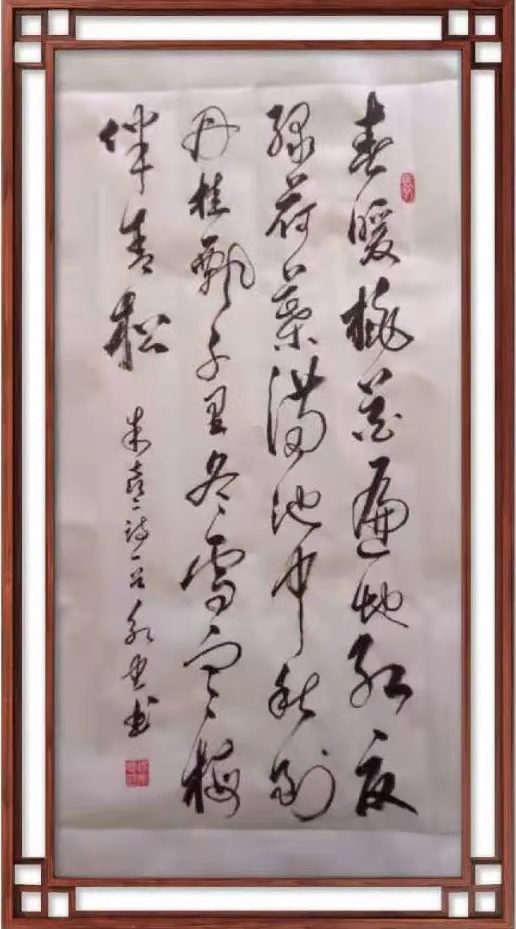 春暖桃花遍地红夏
绿荷葉满池中秋到
丹桂飘千里冬雪寒梅
伴青松
朱熹诗一 永 书